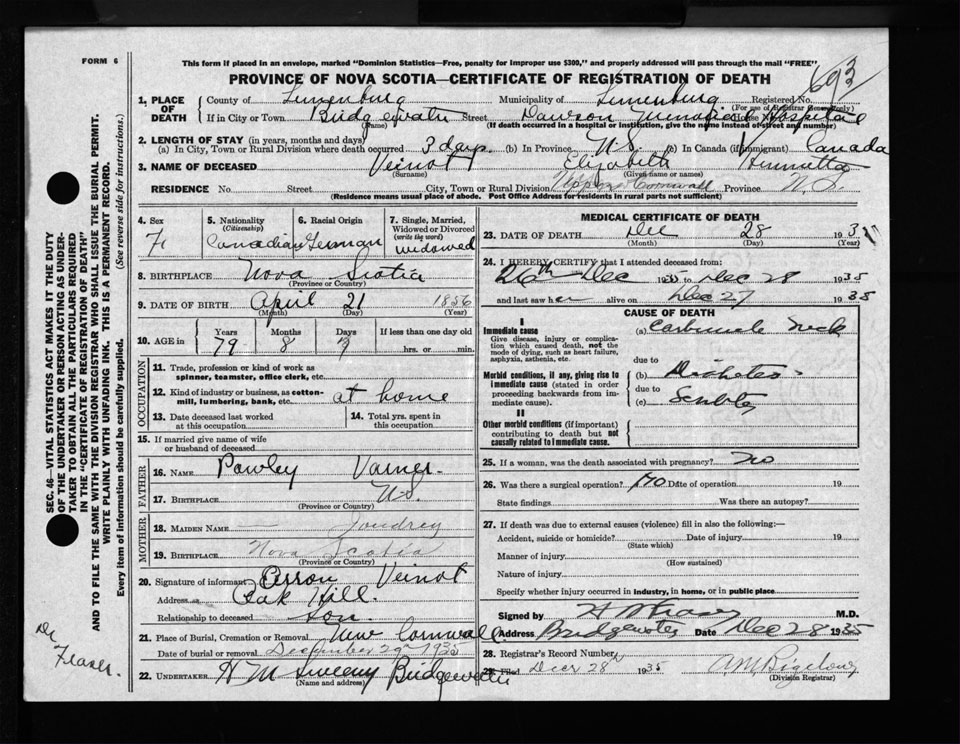 FORM 6
This form if placed in an envelope, marked "Dominion Statistics—Free, penalty for improper use $300," and properly addressed will pass through the mail "FREE".
PROVINCE OF NOVA SCOTIA—CERTIFICATE OF REGISTRATION OF DEATH
693
1. PLACE OF DEATH
County of Lunenburg Municipality of Lunenburg Registered No.
(For use of Registrar General only)
If in City or Town Bridgewater Street Dawson Memorial Hospital House No.
(Name) (If death occurred in a hospital or institution, give the name instead of street and number)
2. LENGTH OF STAY (in years, months and days)
(a) In City, Town or Rural Division where death occurred 3 days. (b) In Province N.S. (c) In Canada (if immigrant) Canada
3. NAME OF DECEASED Veinot Elizabeth Henrietta
(Surname) (Given name or names)
RESIDENCE No. Street City, Town or Rural Division Upper Cornwall Province N.S.
(Residence means usual place of abode. Post Office Address for residents in rural parts not sufficient)
4. Sex F.
5. Nationality (Citizenship) Canadian
6. Racial Origin German
7. Single, Married, Widowed or Divorced (write the word) widowed
8. BIRTHPLACE Nova Scotia
(Province or Country)
9. DATE OF BIRTH April 21 1856
(Month) (Day) (Year)
10. AGE in Years Months Days If less than one day old
79 8 7 hrs. or min.
OCCUPATION
11. Trade, profession or kind of work as spinner, teamster, office clerk, etc.
12. Kind of industry or business, as cotton-mill, lumbering, bank, etc. at home
13. Date deceased last worked at this occupation
14. Total yrs. spent in this occupation
15. If married give name of wife or husband of deceased
FATHER
16. NAME Pawley Varner
17. BIRTHPLACE N.S.
(Province or Country)
MOTHER
18. MAIDEN NAME — Joudrey
19. BIRTHPLACE Nova Scotia
(Province or Country)
20. Signature of informant Veinot
Address Oak Hill.
Relationship to deceased Son.
21. Place of Burial, Cremation or Removal New Cornwall
Date of burial or removal December 29th 1935
22. UNDERTAKER H M Sweeny Bridgewater
(Name and address)
MEDICAL CERTIFICATE OF DEATH
23. DATE OF DEATH Dec 28 1935
(Month) (Day) (Year)
24. I HEREBY CERTIFY that I attended deceased from:
26th Dec 1935 to Dec 28 1935
and last saw her alive on Dec 27 1935
CAUSE OF DEATH
I
Immediate cause
Give disease, injury or complication which caused death, not the mode of dying, such as heart failure, asphyxia, asthenia, etc.
(a) Carbuncle Neck
due to
Morbid conditions, if any, giving rise to immediate cause (stated in order proceeding backwards from immediate cause).
(b) Diabetes
due to
(c) Senility
II
Other morbid conditions (if important) contributing to death but not causally related to immediate cause.
25. If a woman, was the death associated with pregnancy? No
26. Was there a surgical operation? No. Date of operation 19
State findings Was there an autopsy?
27. If death was due to external causes (violence) fill in also the following:—
Accident, suicide or homicide? Date of injury 19
(State which)
Manner of injury
(How sustained)
Nature of injury
Specify whether injury occurred in industry, in home, or in public place
Signed by Fraser M.D.
Address Bridgewater Date Dec 28 1935
28. Registrar's Record Number
29. Filed Decr 28th 1935 A.M. Bigelow
(Division Registrar)
SEC. 46—VITAL STATISTICS ACT MAKES IT THE DUTY OF THE UNDERTAKER OR PERSON ACTING AS UNDERTAKER TO OBTAIN ALL THE PARTICULARS REQUIRED IN THE "CERTIFICATE OF REGISTRATION OF DEATH" AND TO FILE THE SAME WITH THE DIVISION REGISTRAR WHO SHALL ISSUE THE BURIAL PERMIT.
WRITE PLAINLY WITH UNFADING INK. THIS IS A PERMANENT RECORD.
Every item of information should be carefully supplied. (See reverse side for instructions.)
Dr Fraser.